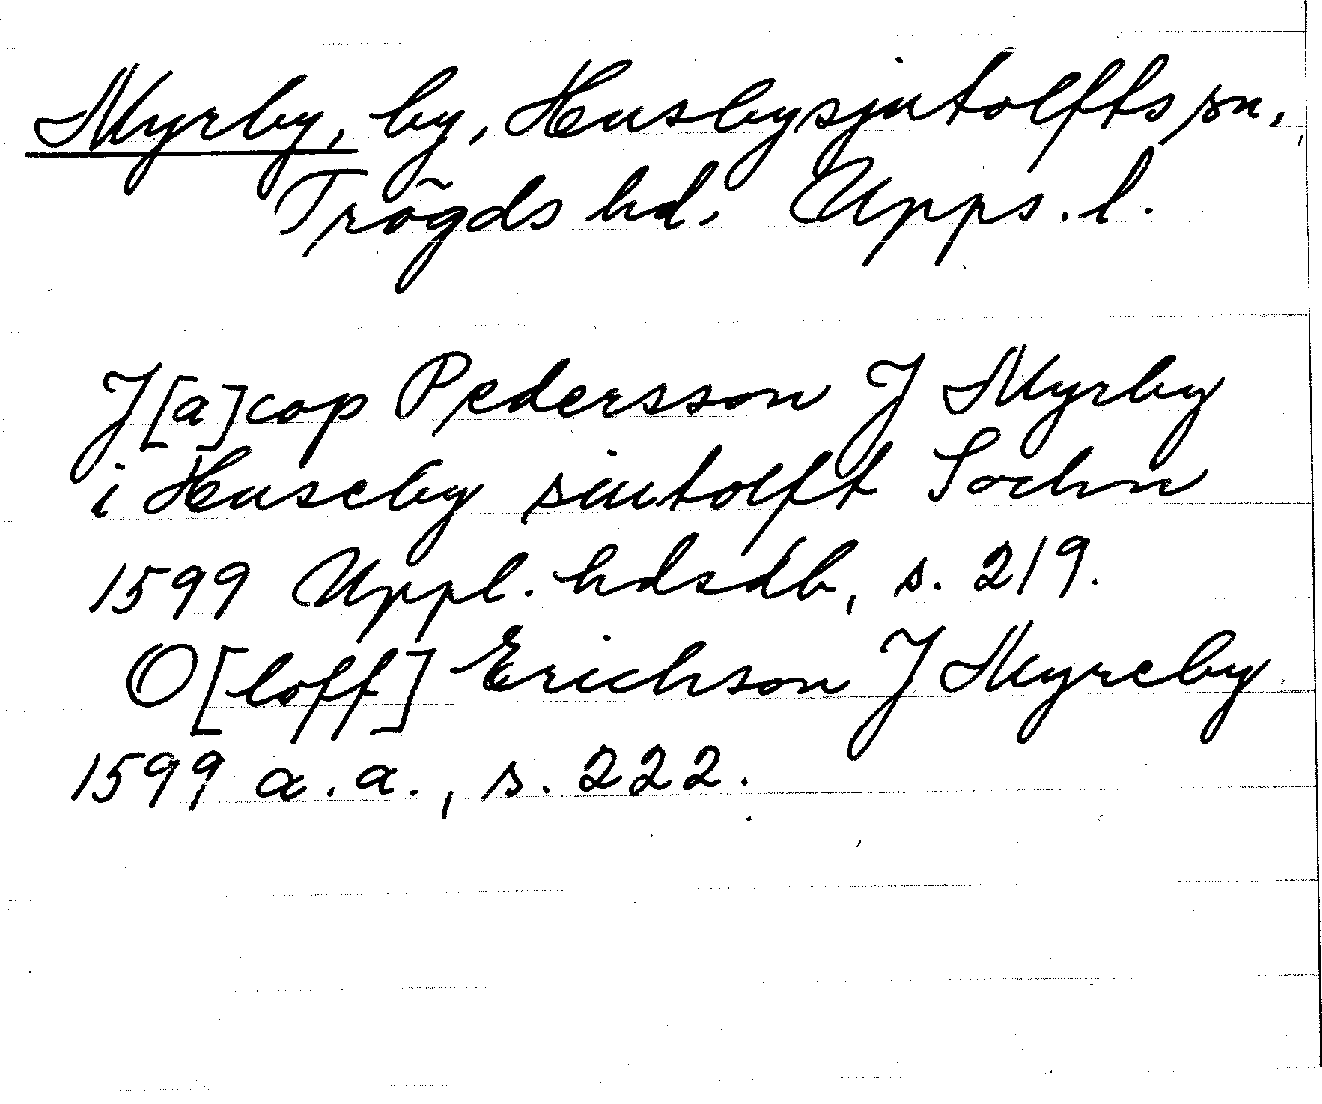 Myrby, by, Husbysjutolfts sn,
Trögds hd. Upps. l.
J[a]cop Pedersson J Myrby
i Huseby siutolfft Sochn
1599 Uppl. hdsdb, s. 219.
O[loff] Erichson J Myreby
1599 a.a., s. 222.